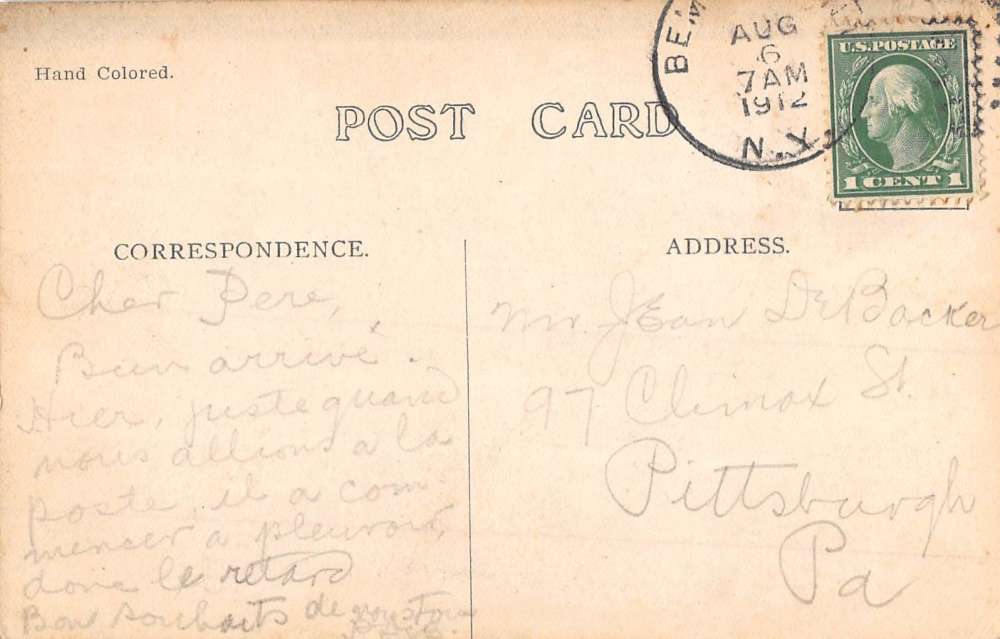 Hand Colored.
POST CARD
BEM
AUG
6
7AM
1912
N.Y.
U.S. POSTAGE
1 CENT 1
CORRESPONDENCE.
ADDRESS.
Cher Pere,
Bien arrivé.
Hier, juste quand
nous allions a la
poste, il a com-
mencer a pleuvoir,
donc le retard
Bon Souhaits de nous tous
Mr. Jean De Backer
97 Climax St.
Pittsburgh
Pa